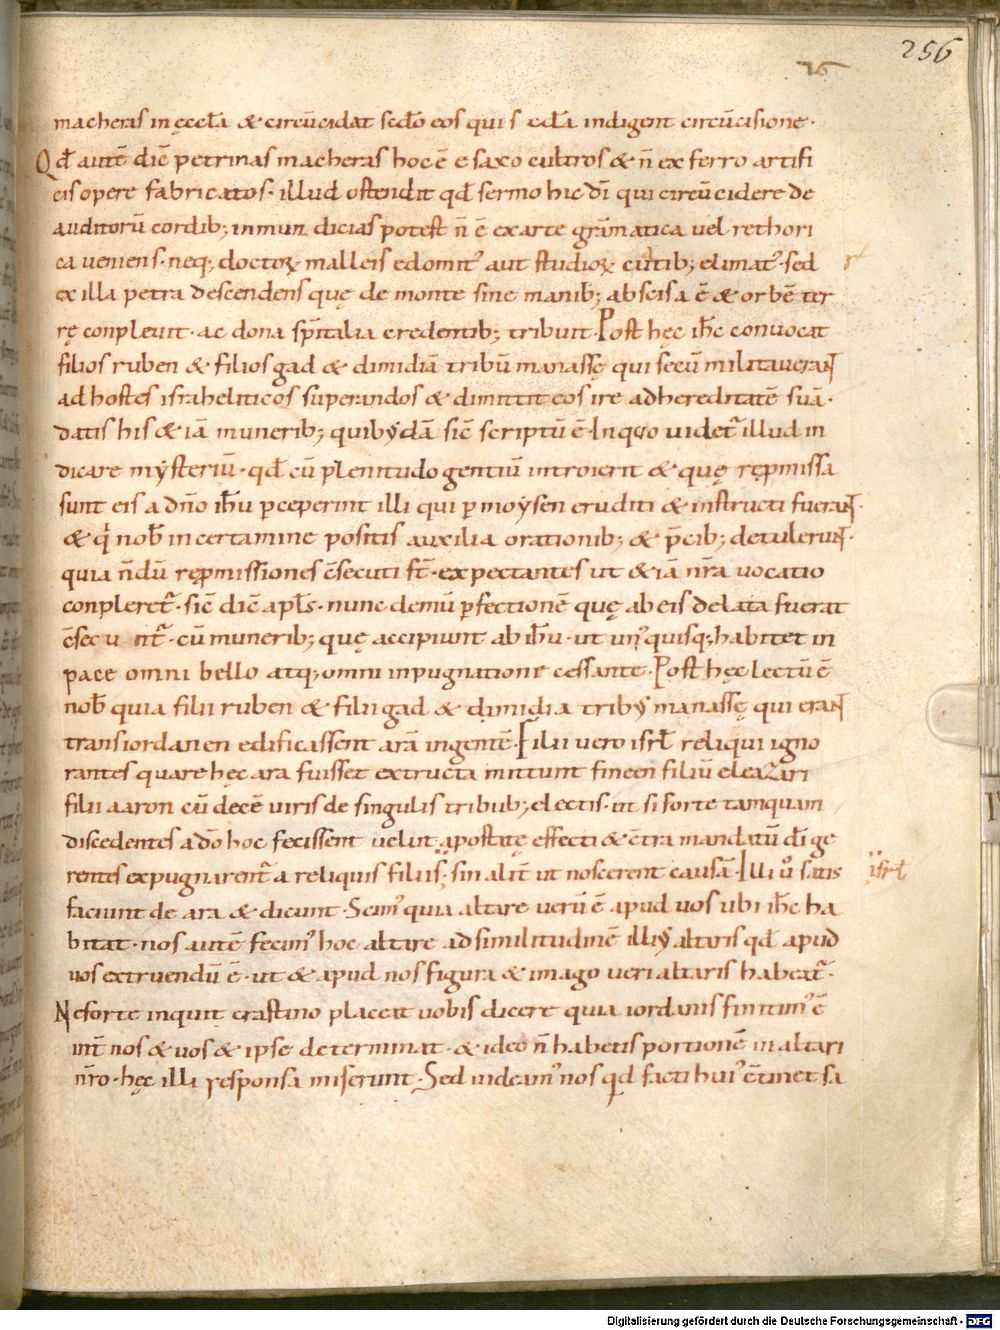 256
macheras in ęccl̅a & circu̅cidat scd̅o eos qui s̅ ccl̅a indigent circu̅cisione·
Qd̅ aute̅ dic̅ petrinas macheras hoc e̅ e saxo cultros & n̅ ex ferro artifi
cis opere fabricatos· illud ostendit qd̅ sermo hic di̅ qui circu̅cidere de
auditoru̅ cordib; inmun dicias potest n̅ e̅ ex arte gra̅matica vel rethori
ca veniens· neq; doctorꝝ malleis edomit᷒ aut studiorꝝ cutib; elimat᷒· sed
ex illa petra descendens quę de monte sine manib; abscisa e̅ & orbe̅ ter
rę conpleuit· ac dona sp̅italia credentib; tribuit· Post hęc ih̅c convocat
filios ruben & filios gad & dimidia̅ tribu̅ manassę qui secu̅ militaveraɴᴛ
ad hostes israheliticos superandos & dimittit eos ire ad hereditate̅ sua̅·
datis his & ia̅ munerib; quib᷒da̅ sic̅ scriptu̅ e̅· In quo videt᷒ illud in
dicare mẏsteriu̅· qd̅ cu̅ plenitudo gentiu̅ introierit & quę rep̱missa
sunt eis a dn̅o ih̅u p̱ceperint illi qui p̱ moẏsen eruditi & instructi fueraɴᴛ·
& qͥ nob̅ in certamine positis auxilia orationib; & p̅cib; detuleruɴᴛ·
quia n̅du̅ rep̱missiones c̅secuti st̅· expectantes ut & ia̅ nr̅a vocatio
conpleret᷒· sic̅ dic̅ apl̅s· nunc demu̅ p̱fectione̅ quę ab eis delata fuerat
c̅secu nt᷒· cu̅ munerib; quę accipiunt ab ih̅u· ut un᷒quisq; habitet in
pace omni bello atq; omni inpugnatione cessante· Post hęc lectu̅ e̅
nob̅ quia filii ruben & filii gad & dimidia trib᷒ manassę qui eraɴᴛ
trans iordanen edificassent ara̅ ingente̅· Filii vero isrl̅ reliqui igno
rantes quare hęc ara fuisset extructa mittunt fineen filiu̅ eleazari
filii aaron cu̅ dece̅ viris de singulis tribub; electis· ut si forte tamquam
discedentes a do̅ hoc fecissent velut apostatę effecti & c̅tra mandatu̅ di̅ ge
rentes expugnarent᷒ a reliquis filiis; sin alit̅ ut noscerent causa̅· Illi v̊ satis
isrl̅
faciunt de ara & dicunt· Scim᷒ quia altare veru̅ e̅ apud vos ubi ih̅c ha
bitat· nos aute̅ fecim᷒ hoc altare ad similitudine̅ illi᷒ altaris qd̅ apud
vos extruendu̅ e̅· ut & apud nos figura & imago veri altaris habeat᷒·
Ne forte inquit crastino placeat vobis dicere quia iordanis finitim᷒ e̅
int̅ nos & vos & ipse determinat· & ideo n̅ habetis portione̅ in altari
nr̅o· hęc illi responsa miserunt· Sed videam᷒ nos qd̅ facti hui᷒ c̅tinet sa
Digitalisierung gefördert durch die Deutsche Forschungsgemeinschaft - DFG